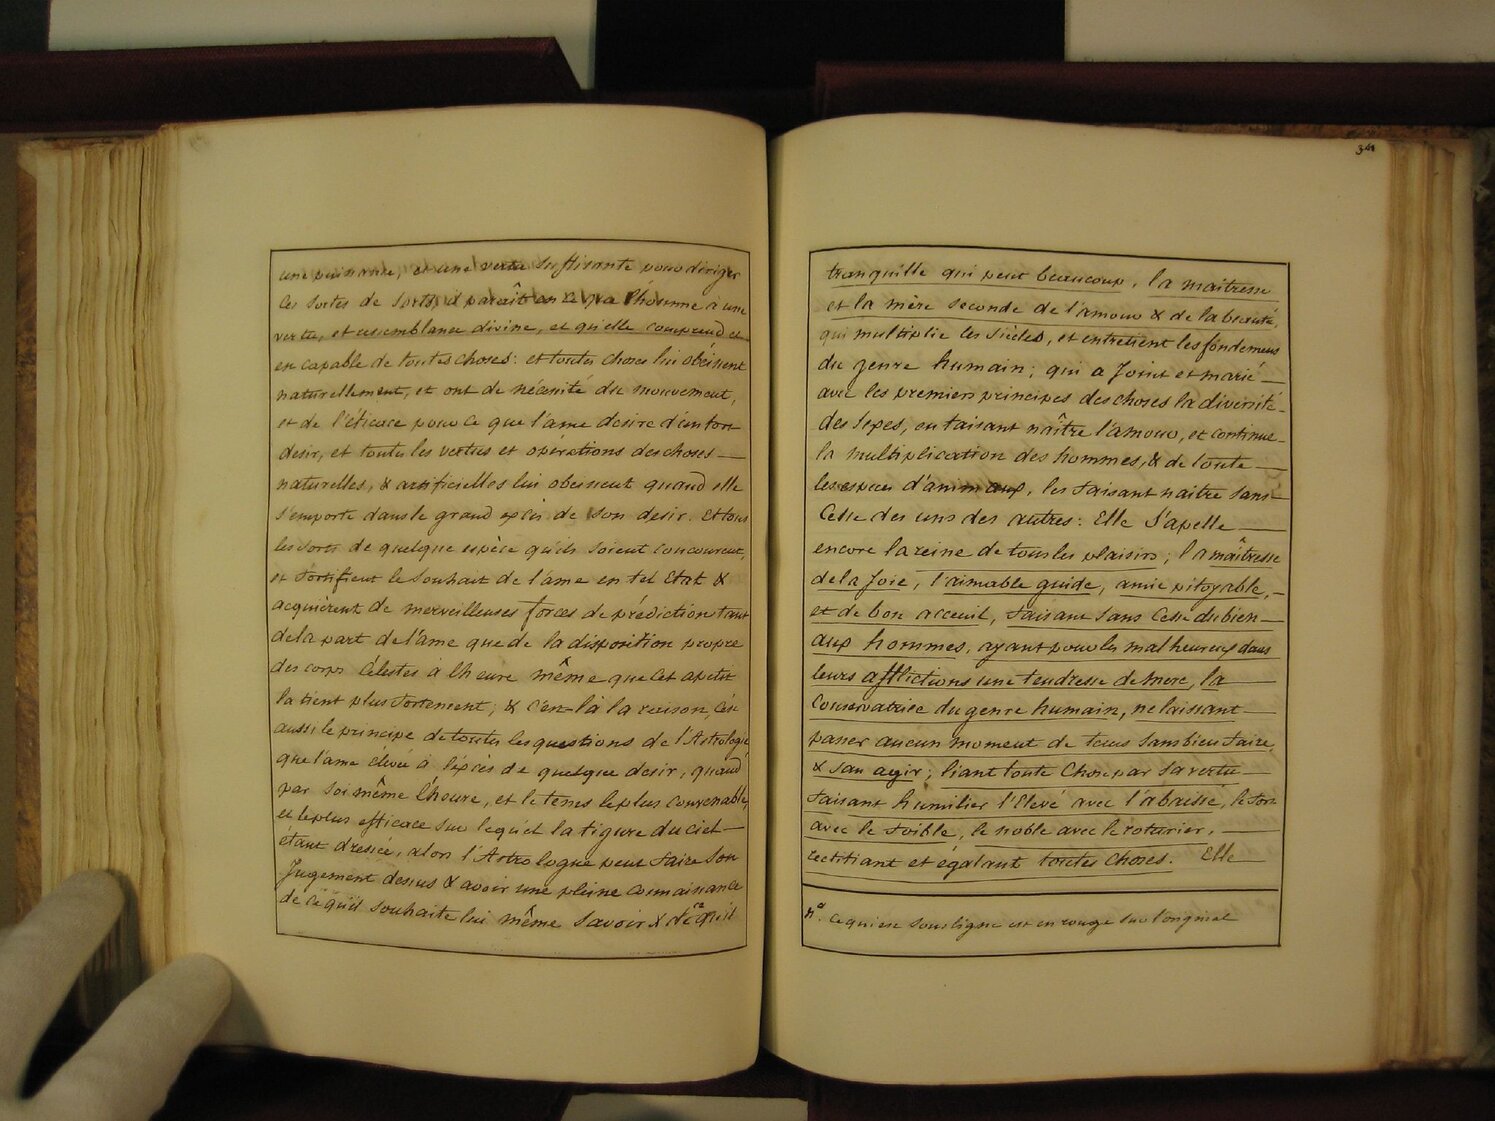 une puissance, et une vertu suffisante pour diriger
ces sortes de sorts, il paraît en ce que l'homme a une
vertu, et ressemblance divine, et qu'elle comprend et
en capable de toutes choses: et toutes choses lui obéissent
naturellement, et ont de nécessité du mouvement,
et de l'éficace pour ce que l'âme desire d'un fort
desir, et toutes les vertus et opérations des choses
naturelles, & artificielles lui obeissent quand elle
s'emporte dans le grand excès de son desir. Et tous
les sorts de quelque espèce qu'ils soient concourent,
et fortifient le souhait de l'ame en tel Etat &
acquièrent de merveilleuses forces de prédiction tant
de la part de l'âme que de la disposition propre
des corps Célestes à l'heure même que cet apetit
la tient plus fortement; & c'en-là la raison, c'est
aussi le principe de toutes les questions de l'Astrologie,
que l'ame élevée à l'éxcès de quelque desir, quand
par soi même l'heure, et le tems le plus convenable,
et le plus efficace sur lequel la figure du ciel
étant dressée, alors l'Astrologue peut faire son
Jugement dessus & avoir une pleine connaissance
de ce qu'il souhaite lui même savoir & de ce qu'il
34
tranquille qui peut beaucoup, la maitresse
et la mère seconde de l'amour & de la beauté,
qui multiplie les siècles, et entretient les fondemens
du genre humain; qui a Joint et marié
avec les premiers principes des choses la diversité
des Sexes, en faisant naître l'amour, et continue
la multiplication des hommes, & de toute
les especes d'animaux, les faisant naitre sans
Cesse des uns des autres: Elle S'apelle
encore la reine de tous les plaisirs; la maîtresse
de la Joie, l'aimable guide, amie pitoyable,
et de bon acceuil, faisant sans Cesse du bien
aux hommes, ayant pour les malheureux dans
leurs afflictions une tendresse de mere, la
Conservatrice du genre humain, ne laissant
passer aucun moment de tems sans bien faire,
& san agir; liant toute Chose par sa vertu
faisant humilier l'Elevé avec l'abaissé, le fort
avec le foible, le noble avec le roturier,
rectifiant et égalant toutes choses. Elle
Nª. Ce qui est souligné est en rouge sur l'original